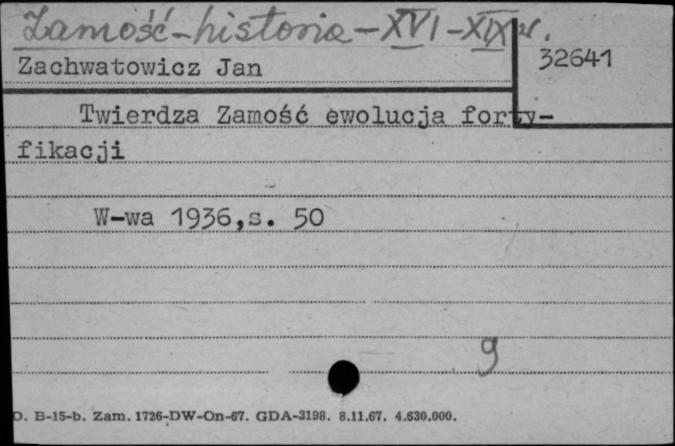 Zamość-historia-XVI-XIX w.
Zachwatowicz Jan
32641
Twierdza Zamość ewolucja forty-
fikacji
W-wa 1936,s. 50
9
D. B-15-b. Zam. 1726-DW-On-67. GDA-3198. 8.11.67. 4.630.000.